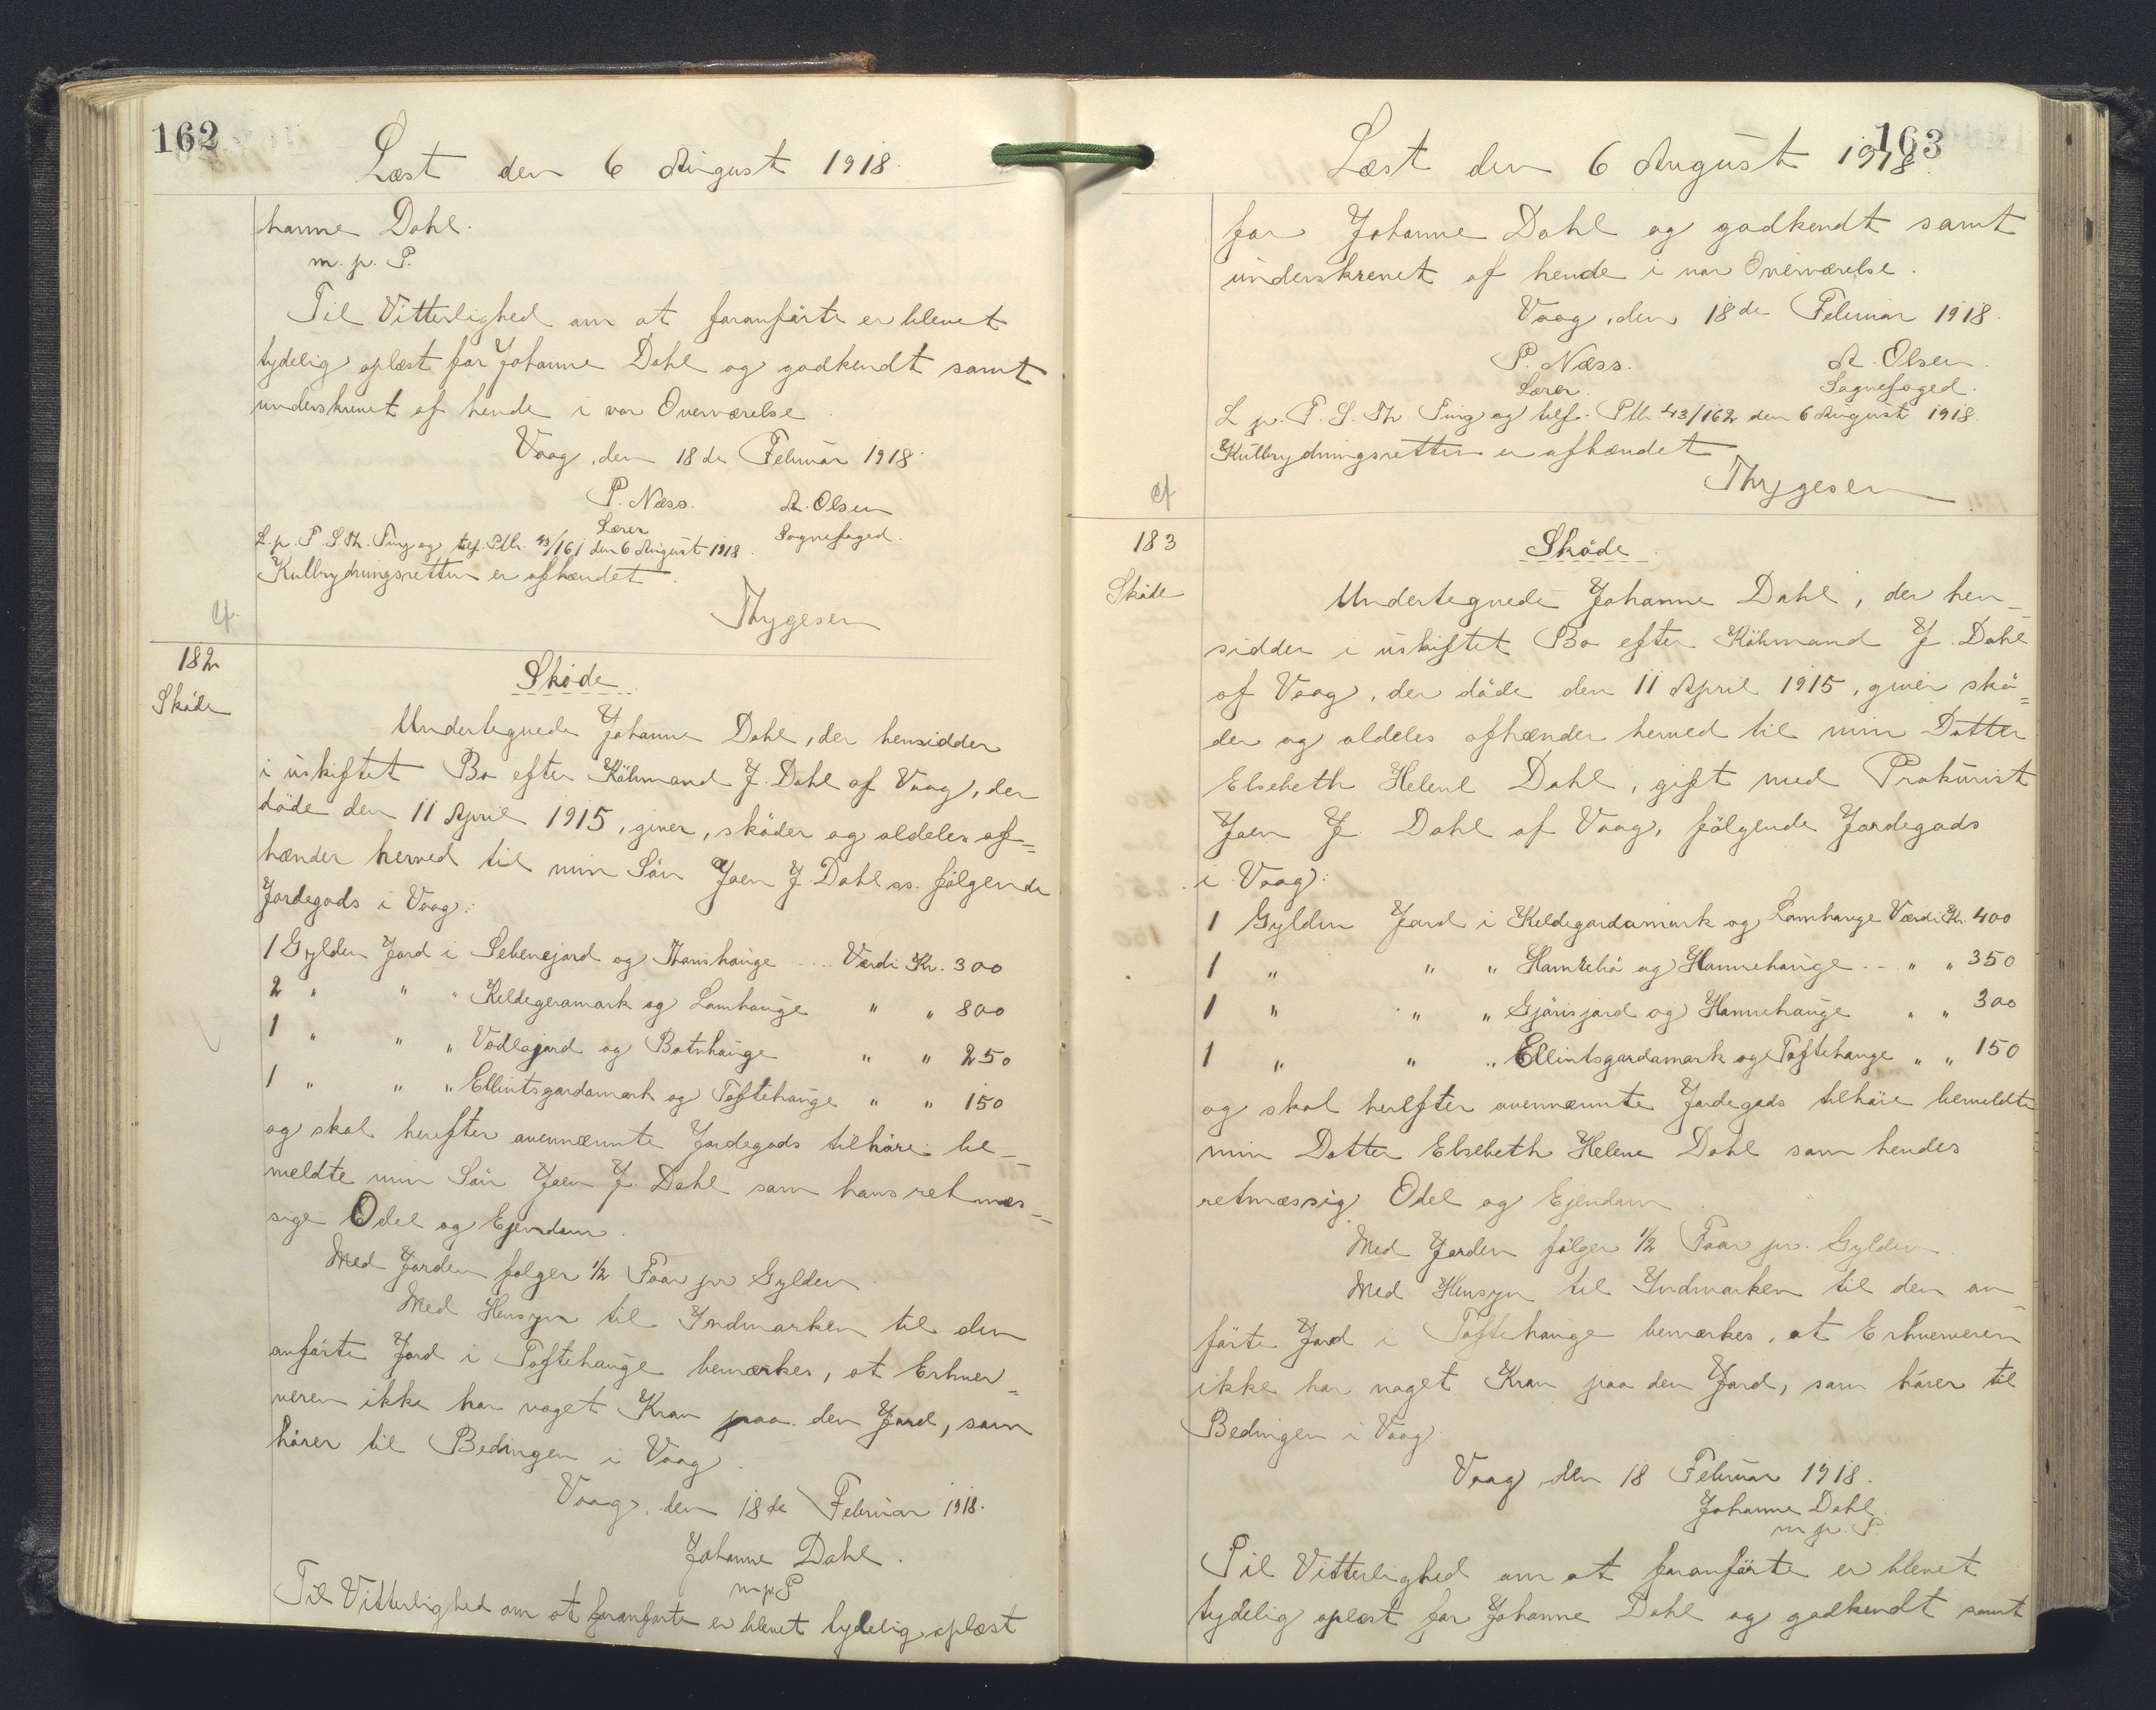 162
Læst den 6 August 1918.
hanne Dahl.
m. p. P.
Til Vitterlighed om at foranførte er blevet
tydelig oplæst for Johanne Dahl og godkendt samt
underskrevet af hende i vor Overværelse.
Vaag, den 18de Februar 1918.
P. Næss. A. Olsen
Lærer Sognefoged.
L. p. P. S. Th. Ting og tilf. Ptb. 43/161 den 6 August 1918.
Kulbrydningsretten er afhændet.
Thygesen
cf.
182
Skøde
Skøde.
Undertegnede Johanne Dahl, der hensidder
i uskiftet Bo efter Købmand J. Dahl af Vaag, der
døde den 11 April 1915, giver, skøder og aldeles af=
hænder herved til min Søn Joen J. Dahl ss. følgende
Jordegods i Vaag:
1 Gylden Jord i Sebenejord og Hamshauge .... Værdi Kr. 300
2 " " " Keldegeramark og Lamhauge " " 800
1 " " " Vodlagard og Botnhauge " " 250
1 " " " Ellintsgardamark og Toftehauge " " 150
og skal herefter ovennævnte Jordegods tilhøre be-
meldte min Søn Joen J. Dahl som hans retmæs-
sige Odel og Ejendom.
Med Jorden følger 1/2 Faar pr Gylden
Med Hensyn til Indmarken til den
anførte Jord i Toftehauge bemærkes, at Erhver=
veren ikke har noget Krav paa den Jord, som
hører til Bedingen i Vaag.
Vaag, den 18de Februar 1918.
Johanne Dahl.
m p P
Til Vitterlighed om at foranførte er blevet tydelig oplæst
163
Læst den 6 August 1918.
for Johanne Dahl og godkendt samt
underskrevet af hende i vor Overværelse.
Vaag, den 18de Februar 1918.
P. Næss. A. Olsen.
Lærer. Sognefoged.
L. p. P. S. Th Ting og tilf. Ptb. 43/162 den 6 August 1918.
Kulbrydningsretten er afhændet
Thygesen
cf
183
Skøde
Skøde.
Undertegnede Johanne Dahl, der hen-
sidder i uskiftet Bo efter Købmand J. Dahl
af Vaag, der døde den 11 April 1915, giver skø=
der og aldeles afhænder herved til min Datter
Elsebeth Helene Dahl, gift med Prokurist
Joen J. Dahl af Vaag, følgende Jordegods
i Vaag:
1 Gylden Jord i Keldegardamark og Lamhauge Værdi Kr. 400
1 " " " Hamrebø og Hamrehauge .. " " 350
1 " " " Gjørisjord og Hamrehauge " " 300
1 " " " Ellintsgardamark og Toftehauge " " 150
og skal herefter ovennævnte Jordegods tilhøre bemeldte
min Datter Elsebeth Helene Dahl som hendes
retmæssig Odel og Ejendom.
Med Jorden følger 1/2 Faar pr. Gylden.
Med Hensyn til Indmarken til den an-
førte Jord i Toftehauge bemærkes, at Erhververen
ikke har noget Krav paa den Jord, som hører til
Bedingen i Vaag.
Vaag, den 18 Februar 1918.
Johanne Dahl.
m p. P.
Til Vitterlighed om at foranførte er blevet
tydelig oplæst for Johanne Dahl og godkendt samt